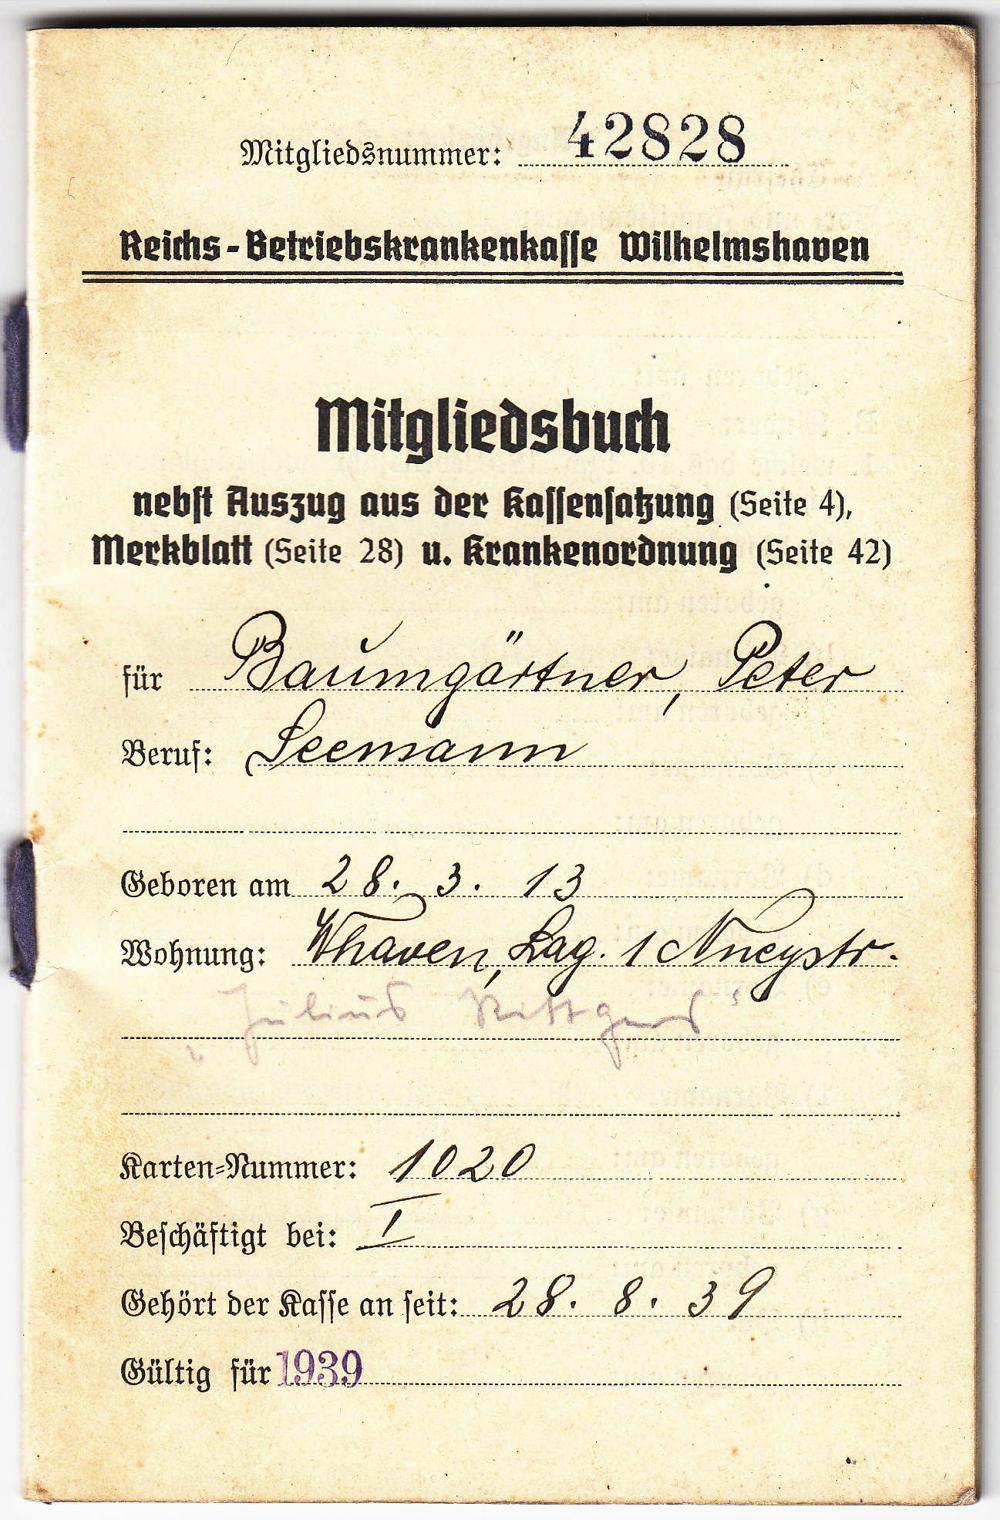 Mitgliedsnummer: 42828
Reichs-Betriebskrankenkasse Wilhelmshaven
Mitgliedsbuch
nebst Auszug aus der Kassensatzung (Seite 4),
Merkblatt (Seite 28) u. Krankenordnung (Seite 42)
für Baumgärtner, Peter
Beruf: Seemann
Geboren am 28. 3. 13
Wohnung: Whaven, Lag. 1
"Julius
Karten-Nummer: 1020
Beschäftigt bei: I
Gehört der Kasse an seit: 28. 8. 39
Gültig für 1939